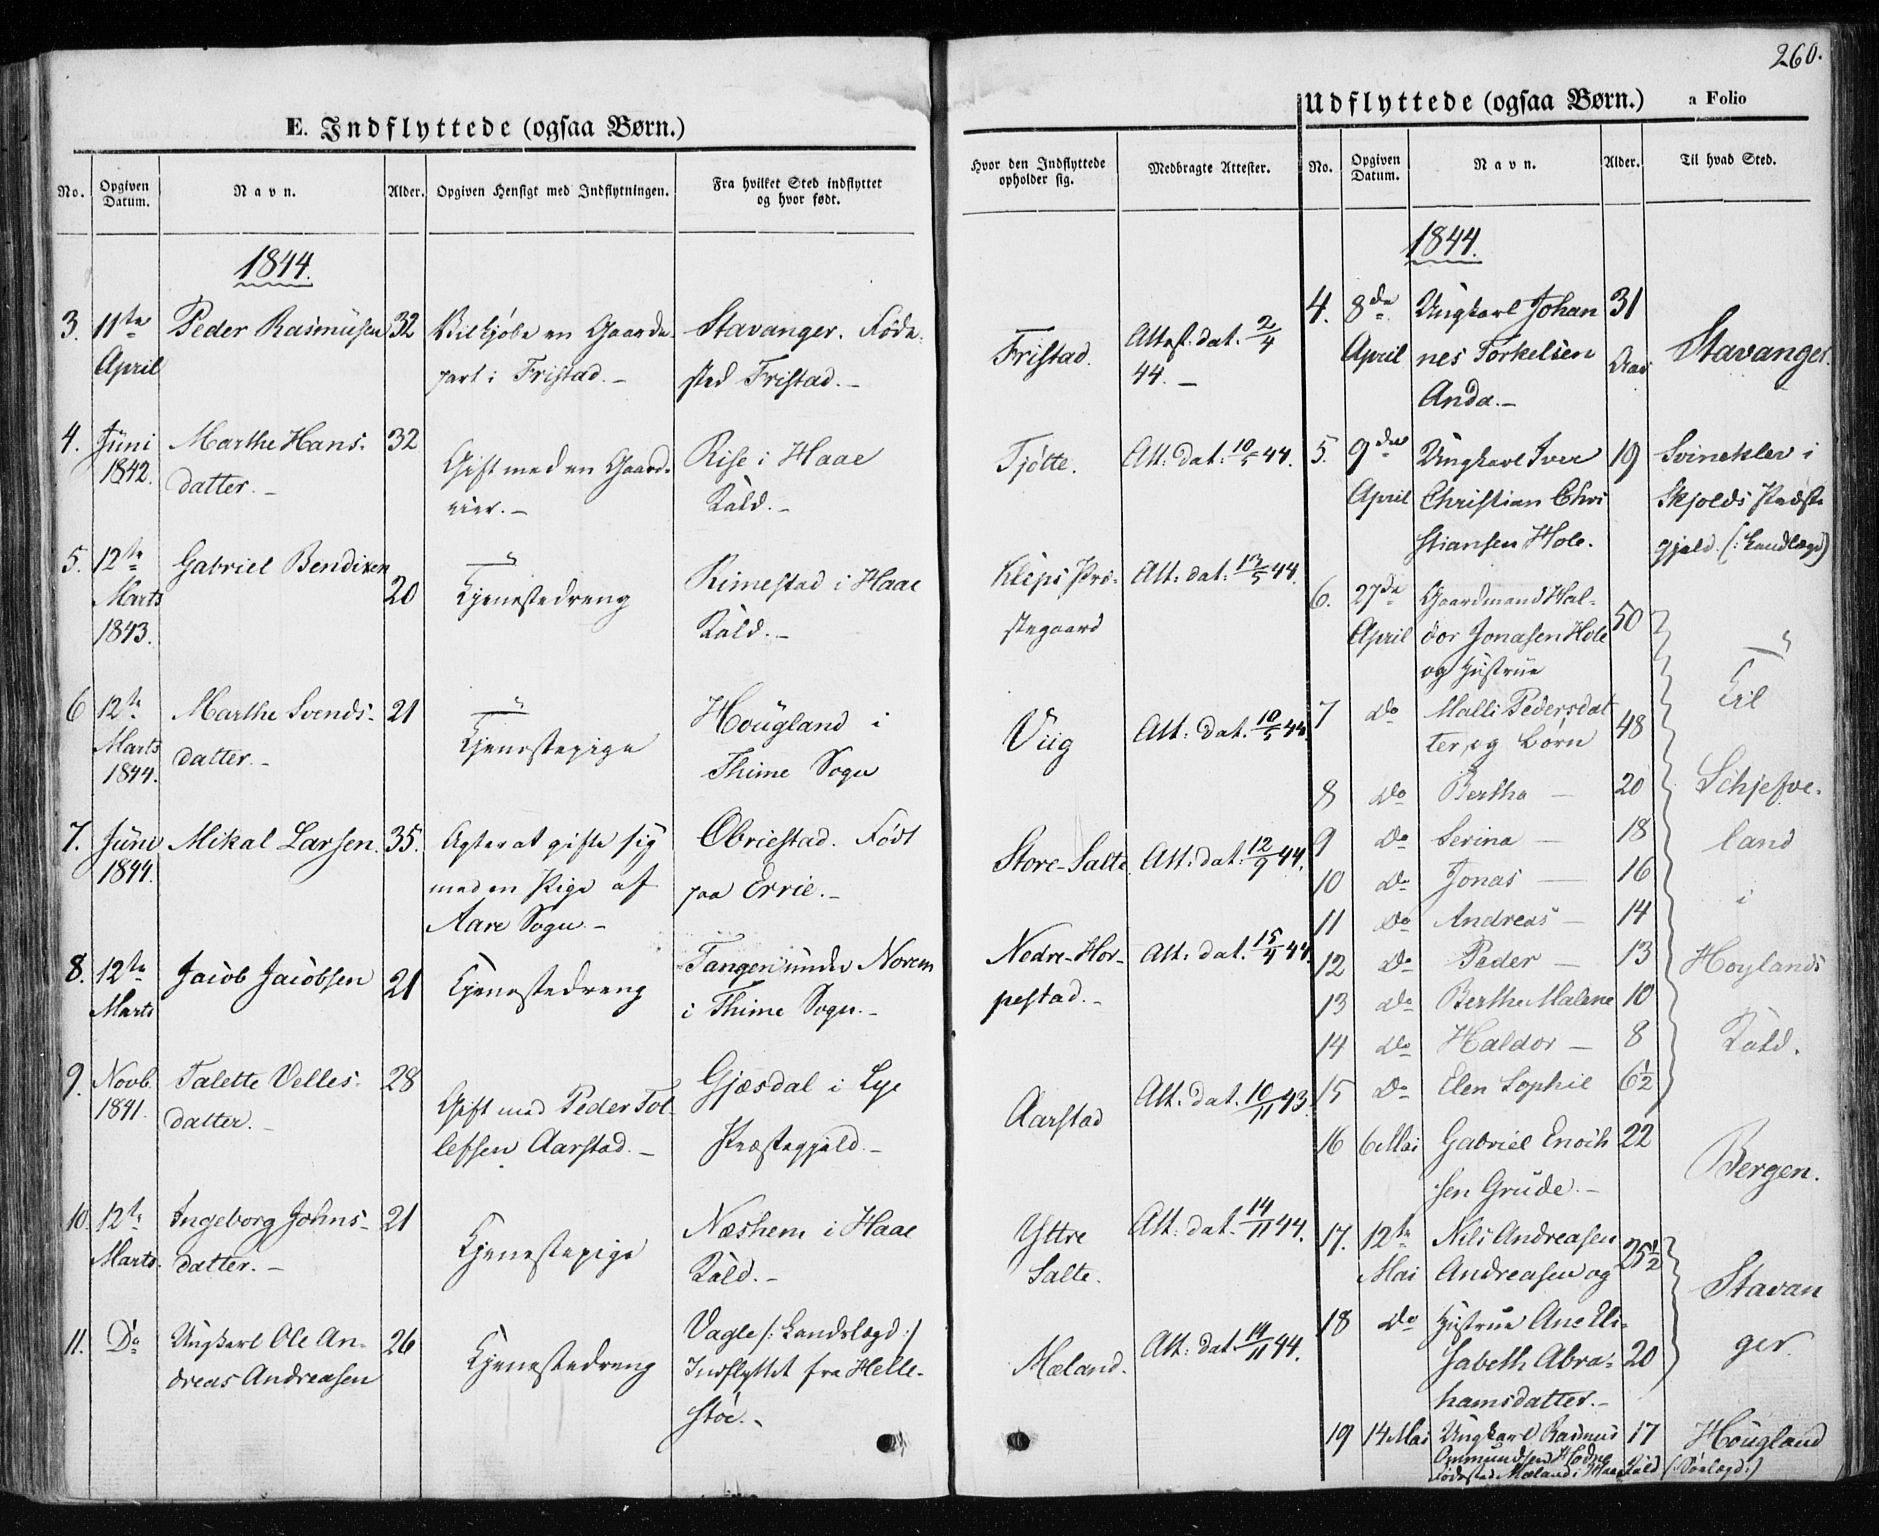 260.
E. Indflyttede (ogsaa Børn.)
No. Opgiven Datum. Navn. Alder. Opgiven Hensigt med Indflytningen. Fra hvilket Sted indflyttet og hvor født.
1844.
3. 11te Peder Rasmusen 32 Vil kjøbe en Gaarde- Stavanger. Føde-
April part i Fristad.- sted Fristad.-
4. Juni Marthe Hans- 32 Gift med en Gaard- Rise i Haae
1842. datter.- Kald.-
5. 12te Gabriel Bendixen 20 Tjenestedreng Rimestad i Haae
Marts Kald.-
1843.
6 12te Marthe Svends- 21 Tjenestepige Hougland i
Marts datter.- Thime Sogn
1844.
7. Juni Mikal Larsen. 35. Agter at gifte sig Obriestad. Født
1844. med en Pige af paa Errie.-
Aare Sogn.-
8. 12te Jacob Jacobsen 21 Tjenestedreng Tangen under Norem
Marts i Thime Sogn.-
9. Novb. Talette Velles- 28 Gift med Peder Tol- Gjæsdal i Lye
1841. datter.- lefsen Aarstad.- Præstegjeld.-
10. 12te Ingeborg Johns- 21 Tjenestepige Næshem i Haae
Marts. datter.- Kald.-
11. Do Ungkarl Ole An- 26 Tjenestedreng Vagle /: Landslægd :/
dreas Andreasen Indflyttet fra Helle-
støe.-
Hvor den Indflyttede opholder sig. Medbragte Attester.
Fristad. Attest. dat. 2/4
44.-
Tjøtte. Att: dat: 10/5 44.
Kleps Præ- Att: dat: 13/5 44.
stegaard
Viig Att: dat. 10/5 44.
Store-Salte Att: dat: 12/9 44.
Nedre-Hor- Att: dat. 15/4 44.
pestad.-
Aarstad Att: dat. 10/11 43.
Yttre Att: dat. 14/11 44.
Salte.
Mæland. Att: dat 14/11 44.
Udflyttede (ogsaa Børn.) a Folio
No. Opgiven Datum. Navn. Alder. Til hvad Sted.
1844.
4. 8de Ungkarl Johan 31 Stavanger.
April nes Torkelsen
Anda.-
5. 9de Ungkarl Iver 19 Svinekler i
April Christian Chri Skjolds Præste
stiansen Hole. gjeld. (: Landlægd)
6. 27de Gaardmand Hal- 50
April dor Jonasen Hole
og Hustrue
7 do Malli Pedersdat 48 Til
ter, og Børn
8 do Bertha - 20 Schjefve-
9 do Serina - 18 land
10 do Jonas - 16 i
11 do Andreas - 14
12 do Peder - 13 Høylands
13 do Berthe Malene 10
14 do Haldor - 8 Kald.
15 do Elen Sophie 6 1/2
16 6 Mai Gabriel Enoch 22 Bergen.
sen Grude.-
17. 12te Nils Andreasen 25 1/2
Mai Andreasen og Stavan
18 do Hustrue Ane Eli-
sabeth Abra- 20 ger
hamsdatter.-
19 14 Mai Ungkarl Rasmus 17 Hougland
Ommundsen Hodne
Fødested Mæland i Haae Kald